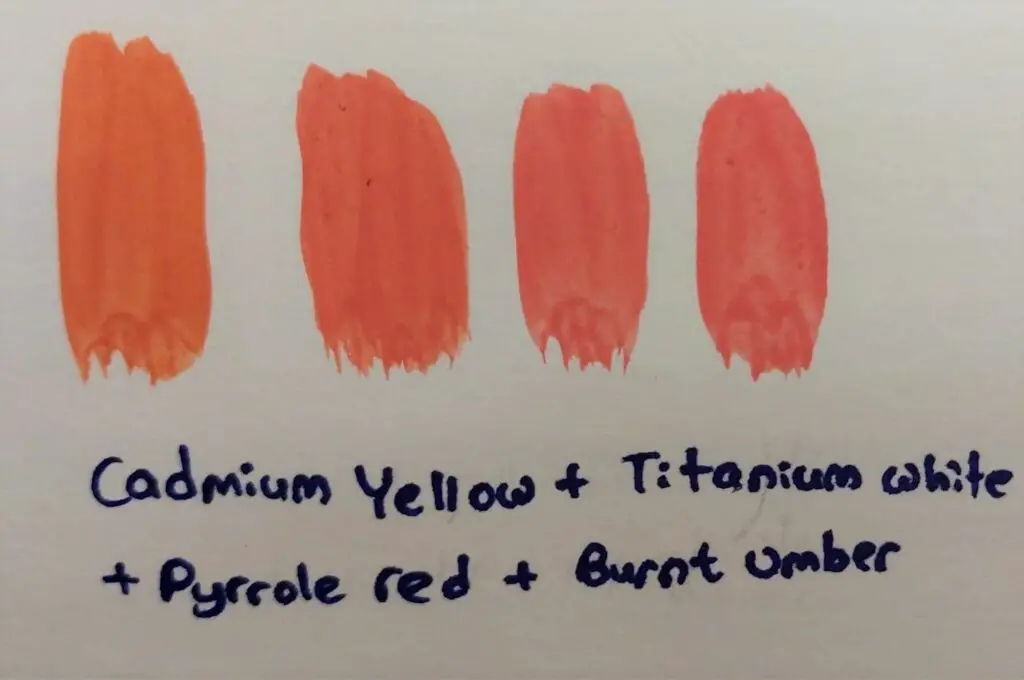 Cadmium Yellow + Titanium white
+ Pyrrole red + Burnt umber